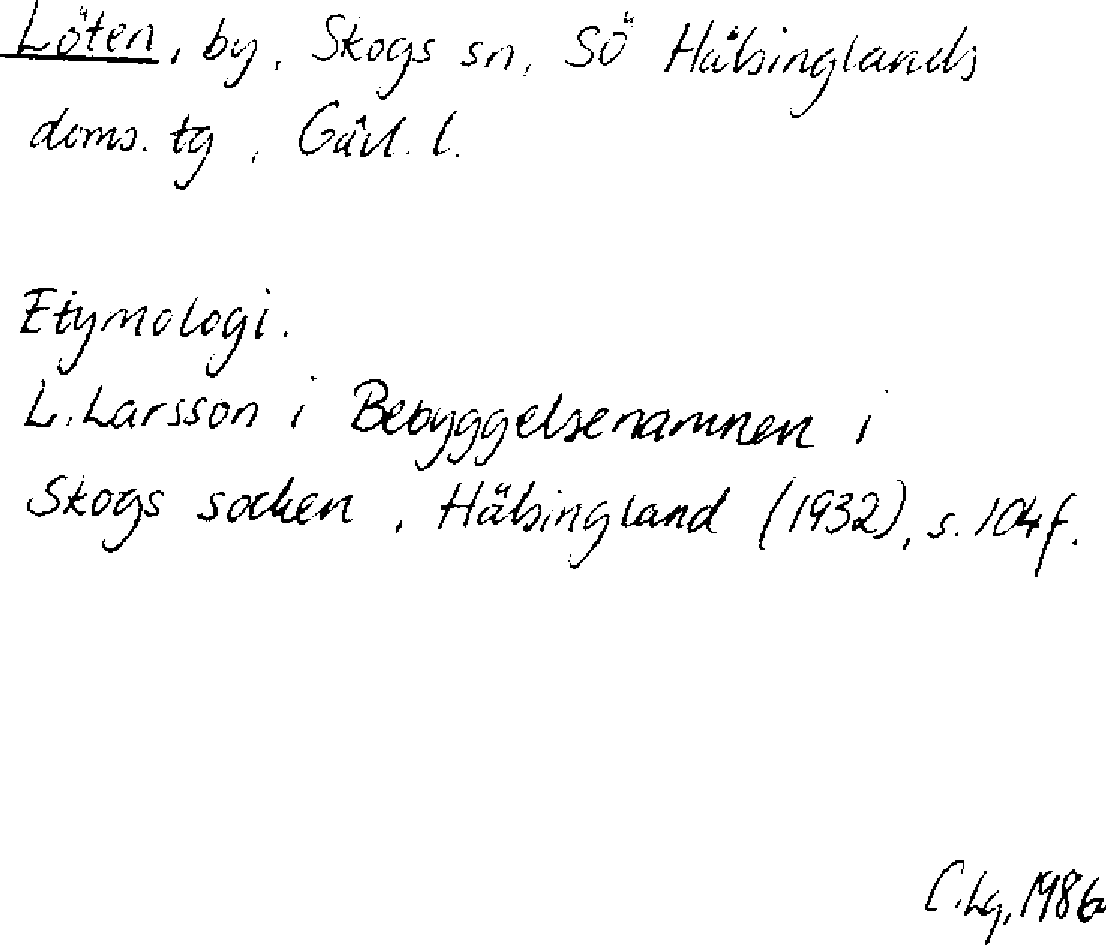 Löten, by, Skogs sn, Sö Hälsinglands
doms. tg, Gävl. l.
Etymologi.
L. Larsson i Bebyggelsenamnen i
Skogs socken, Hälsingland (1932), s. 104 f.
C. Lg, 1986